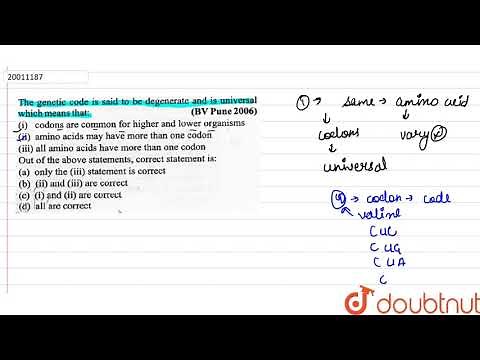 20011187
The genetic code is said to be degenerate and is universal
which means that: (BV Pune 2006)
(i) codons are common for higher and lower organisms
(ii) amino acids may have more than one codon
(iii) all amino acids have more than one codon
Out of the above statements, correct statement is:
(a) only the (iii) statement is correct
(b) (ii) and (iii) are correct
(c) (i) and (ii) are correct
(d) all are correct
① → same → amino acid
codons vary
universal
codon → code
valine
CUC
CUG
CUA
C
doubtnut